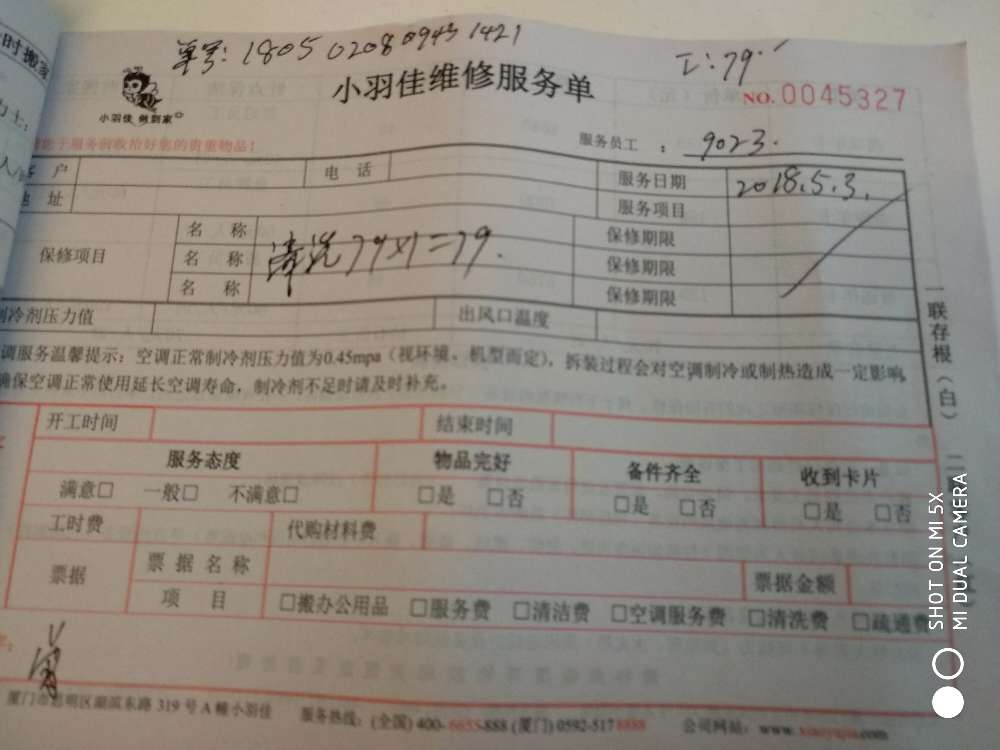 单号: 1805 0208 0943 1421
工: 79.
小羽佳 做到家
小羽佳维修服务单
NO. 0045327
您于服务前收拾好您的贵重物品!
服务员工 : 9023.
户 电话 服务日期 2018.5.3.
地址 服务项目
保修项目 名称 清洗79×1=79. 保修期限
名称 保修期限
名称 保修期限
制冷剂压力值 出风口温度
调服务温馨提示: 空调正常制冷剂压力值为0.45mpa (视环境、机型而定), 拆装过程会对空调制冷或制热造成一定影响,
确保空调正常使用延长空调寿命, 制冷剂不足时请及时补充。
一联存根(白) 二
开工时间 结束时间
服务态度 物品完好 备件齐全 收到卡片
满意□ 一般□ 不满意□ □是 □否 □是 □否 □是 □否
工时费 代购材料费
票据 票据名称 票据金额
项目 □搬办公用品 □服务费 □清洁费 □空调服务费 □清洗费 □疏通费
厦门市思明区湖滨东路 319 号 A 幢小羽佳 服务热线: (全国) 400-6655-888 (厦门) 0592-5178888 公司网站: www.xiaoyujia.com
时搬家
士:
SHOT ON MI 5X
MI DUAL CAMERA